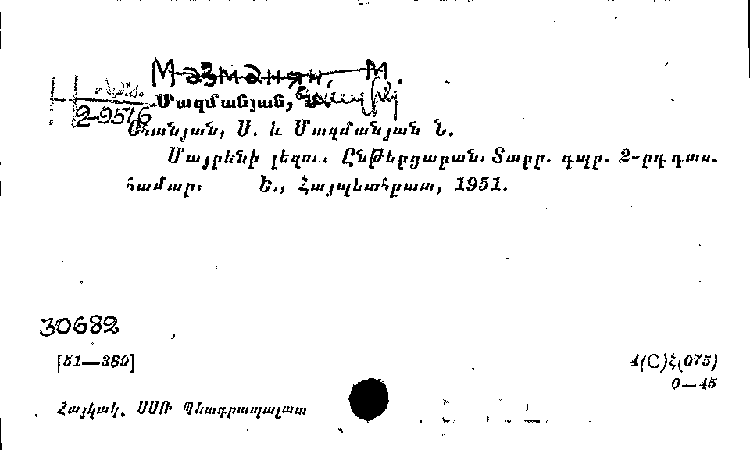 2-9576 Մազմանյան,
Օհանյան, Ս. և Մազմանյան Ն.
Մայրենի լեզու. Ընթերցարան. Տարր. դպր. 2-րդ դաս.
համար. Ե., Հայպետհրատ, 1951.
30682
[51—380]
4(C)Հ(075)
Օ—45
Հայկակ. ՍՍՌ Պետգրապալատ